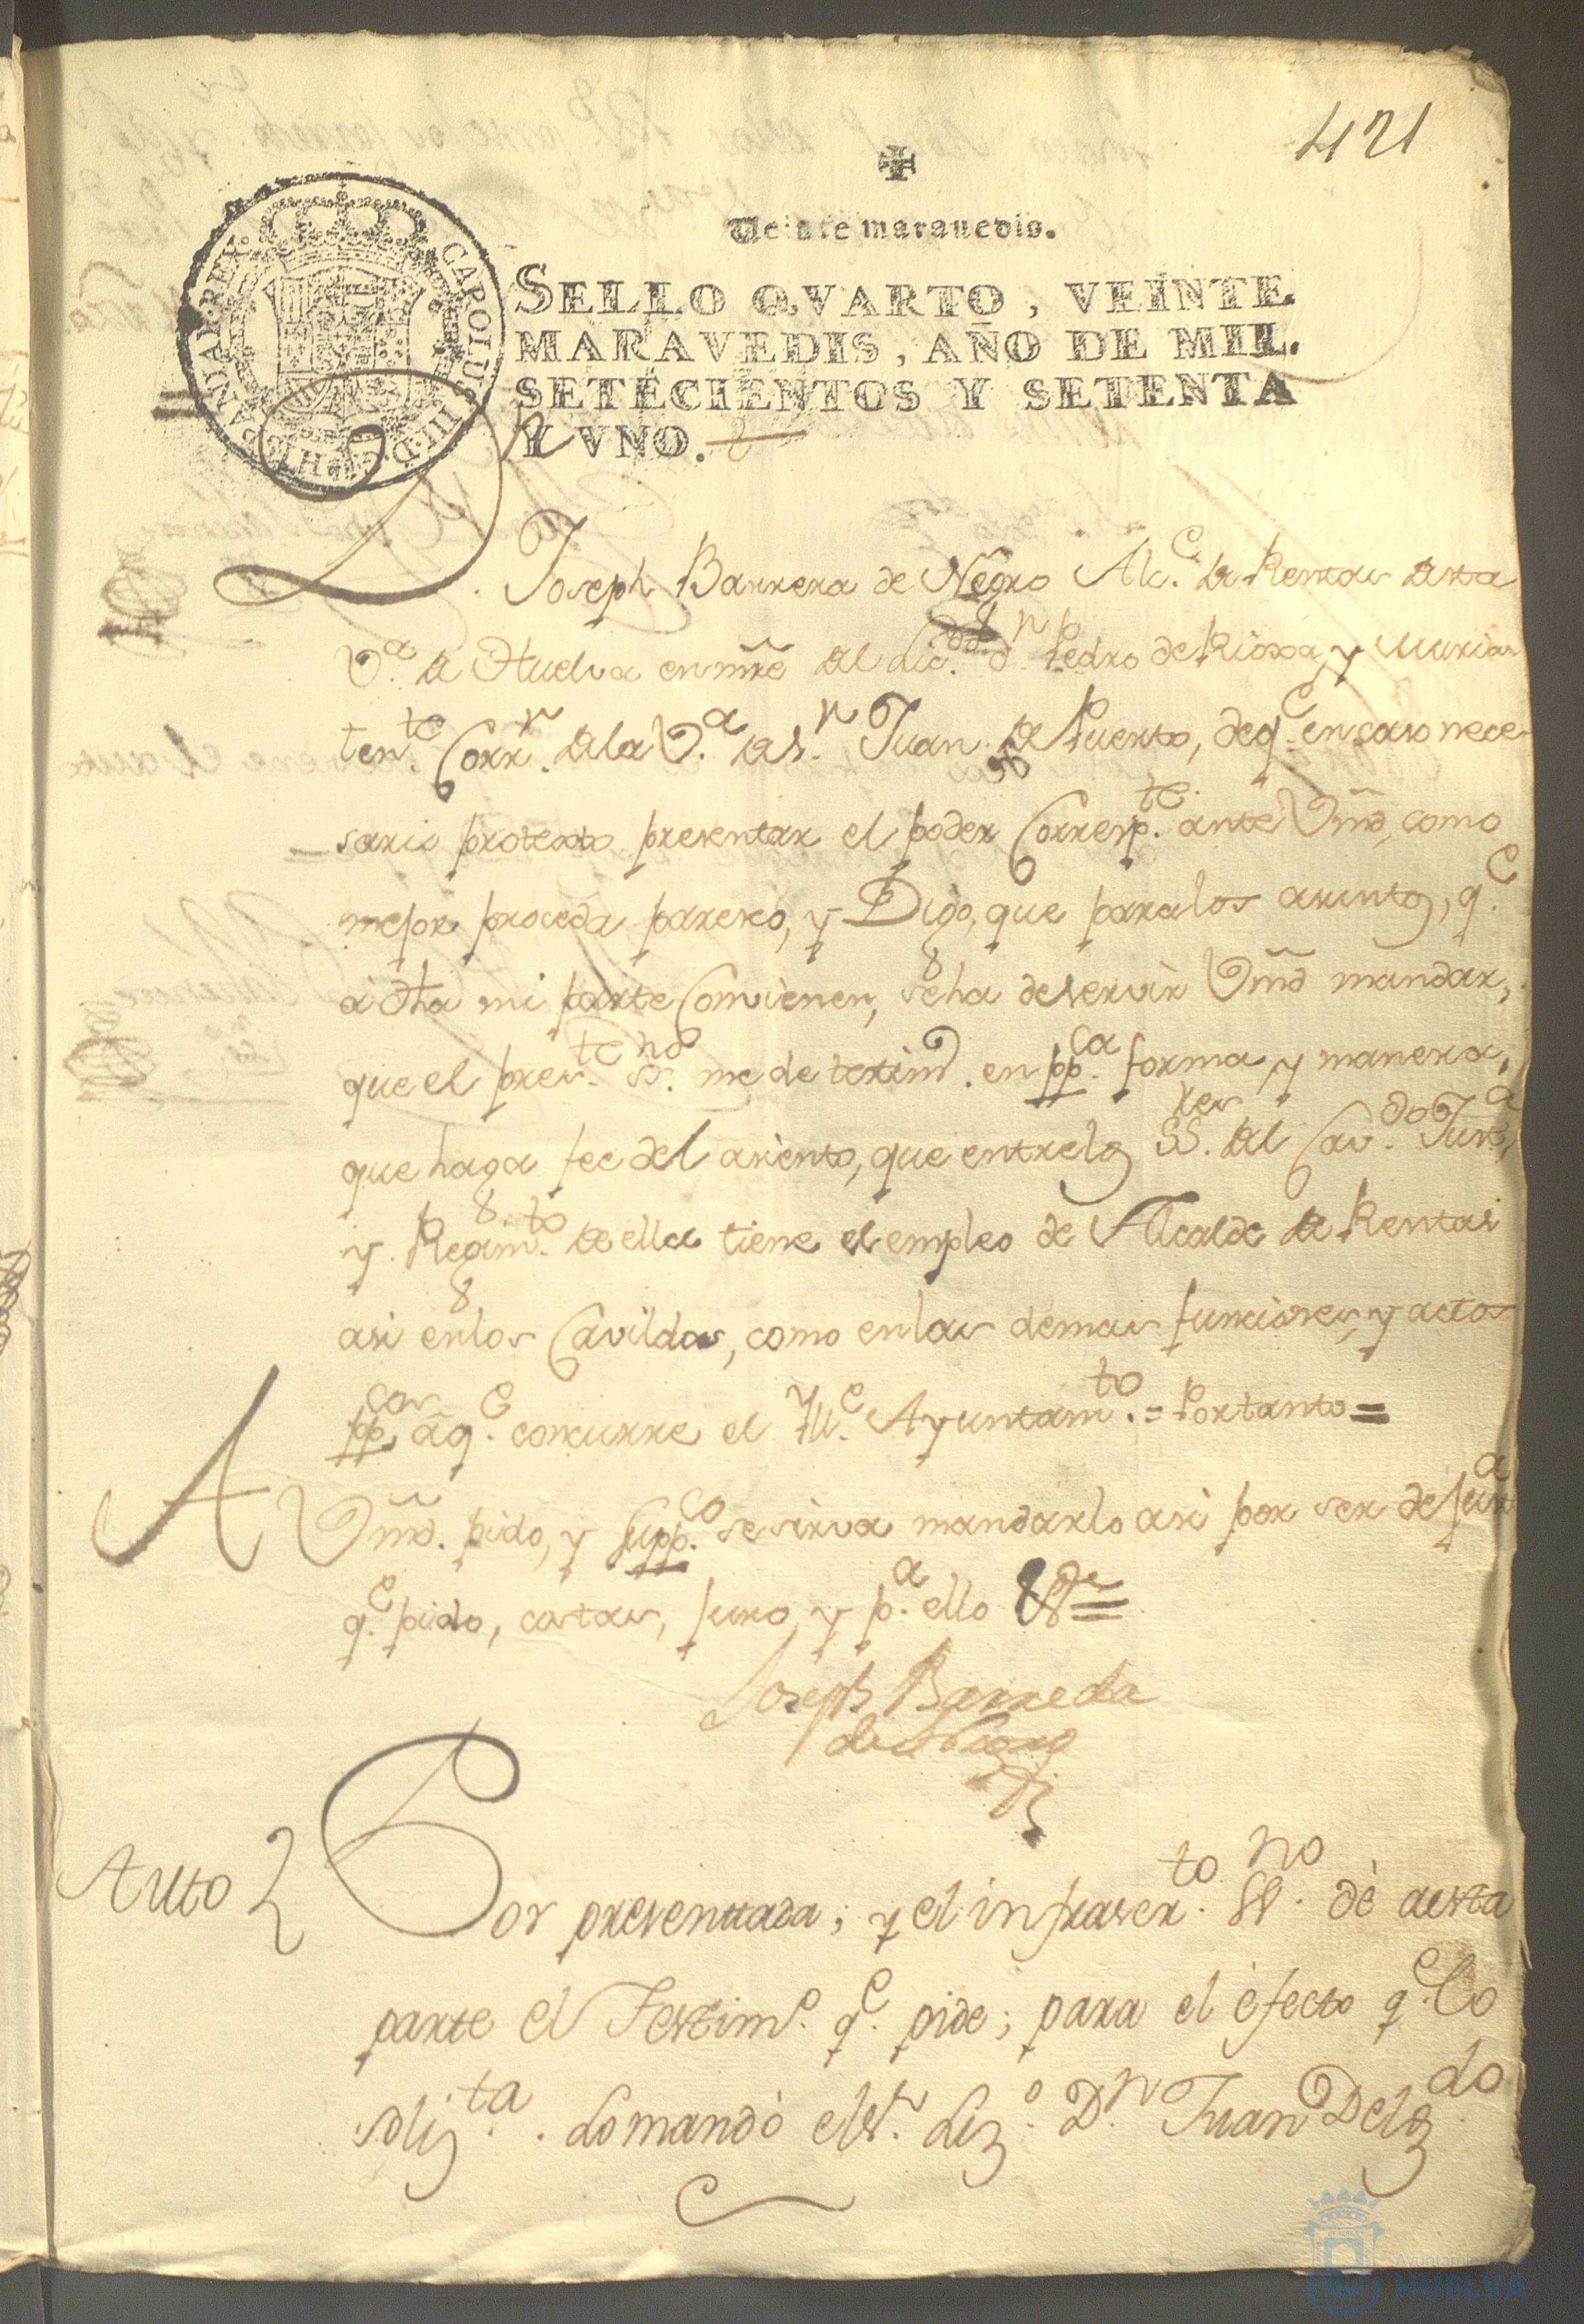 421
Veinte maravedis.
SELLO QVARTO, VEINTE
MARAVEDIS, AÑO DE MIL.
SETECIENTOS Y SETENTA
Y VNO.
CAROLUS III D G HISPANIAR REX
Dn. Joseph Barrera de Negro Alce. de Rentas desta
Va. de Huelva en nre del Lic.do dn. Pedro de Rioxa, y
tente. Corrr. de la Va. de Sn. Juan del Puerto, de qe. en caso nece-
sario protexto presentar el poder Correspte. ante Vmd, como
mejor proceda paresco, y Digo, que para los asuntos, qe.
à dha mi parte Convienen, se ha deservir Vmd mandar,
que el preste. Sno. me de testimo. en ppca. forma, y manera,
que haga fee del asiento, que entre los SSres. del Cavdo Justa,
y Regimto. de ella tiene el empleo de Alcalde de Rentas
asi en los Cavildos, como en las demas funciones, y actos
ppcos. à qe. concurre el Ille. Ayuntamto. = Por tanto =
A Vmd. pido, y suppco. se sirva mandarlo asi por ser de Justa
qe. pido, costas, juro, y pa. ello Va =
Joseph Barreda
de Negro
Auto Por presentada; y el infrascrto. Sno. dè a esta
parte el Testimo. qe. pide; para el èfecto qe. lo
solizta. Lo mandò el Sr. Lizo. Dn Juan Delgdo.
Ayuntamiento
HUELVA